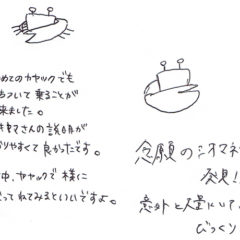 めてのカヤックでも
ついて乗ることが
来ました。
さんの説明が
りやすくて良かったです。
中、カヤックで様に
ってねてみるといいですよ。
念願のシオマネ
発見!!
意外と大量にいて
びっくり